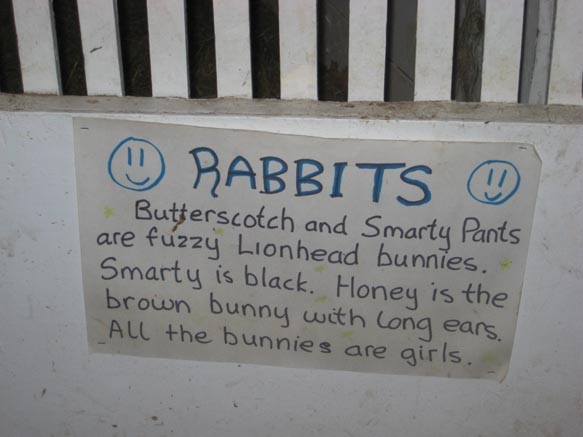 RABBITS
Butterscotch and Smarty Pants
are fuzzy Lionhead bunnies.
Smarty is black. Honey is the
brown bunny with long ears.
All the bunnies are girls.